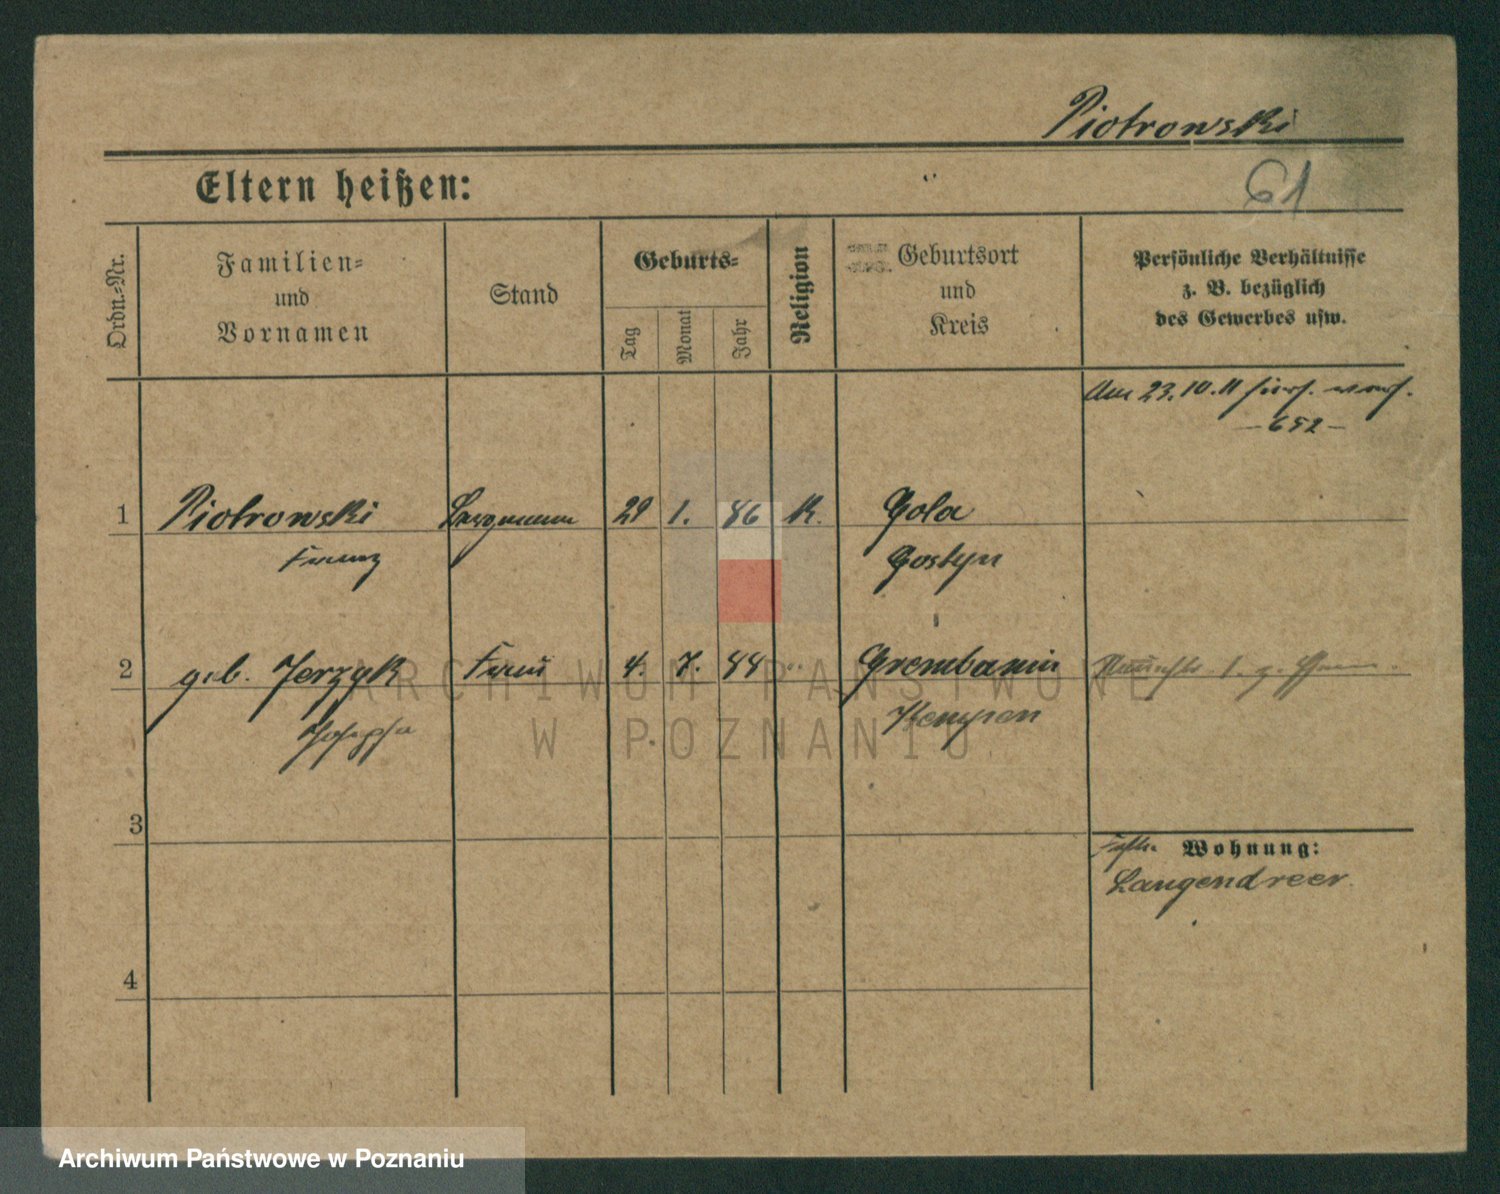 Piotrowski
Eltern heißen:
61
Ordn.-Nr.
Familien-
und
Vornamen
Stand
Geburts-
Tag
Monat
Jahr
Religion
Geburtsort
und
Kreis
Persönliche Verhältnisse
z. B. bezüglich
des Gewerbes usw.
Am 23.10.11
-652-
1 Piotrowski Bergmann 29 1. 86 K. Gola
Franz Gostyn
2 geb. Jerzyk Frau 4. 7. 88 " Grembanin
Josepha Kempen
3
Wohnung:
Langendreer.
4
ARCHIWUM PAŃSTWOWE
W POZNANIU
Archiwum Państwowe w Poznaniu